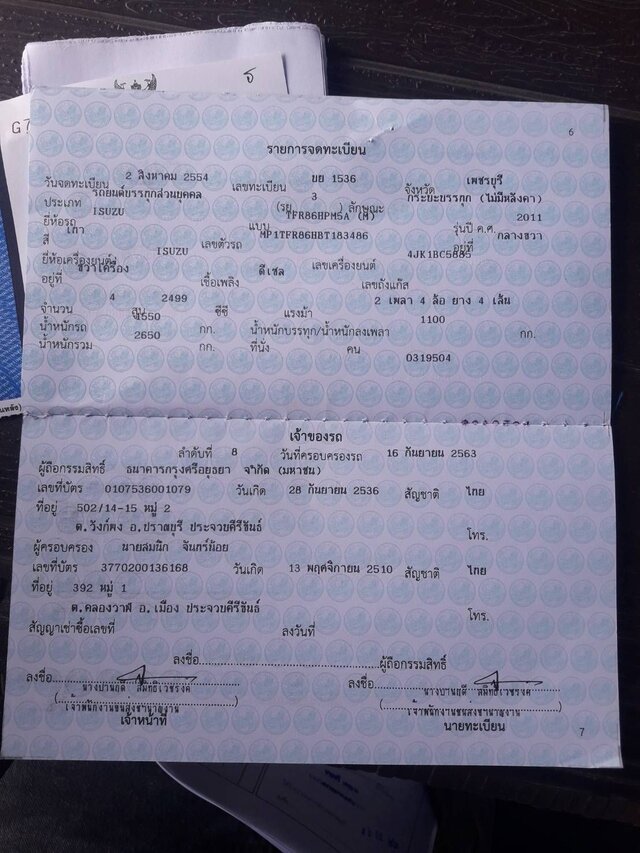 6
รายการจดทะเบียน
วันจดทะเบียน 2 สิงหาคม 2554 เลขทะเบียน บย 1536 จังหวัด เพชรบุรี
ประเภท รถยนต์บรรทุกส่วนบุคคล (รย. 3 ) ลักษณะ กระบะบรรทุก (ไม่มีหลังคา)
ยี่ห้อรถ ISUZU แบบ TFR86HPM5A (M) รุ่นปี ค.ศ. 2011
สี เทา เลขตัวรถ MP1TFR86HBT183486 อยู่ที่ กลางขวา
ยี่ห้อเครื่องยนต์ ISUZU เลขเครื่องยนต์ 4JK1BC5885
อยู่ที่ ขวาเครื่อง เชื้อเพลิง ดีเซล เลขถังแก๊ส
จำนวน 4 สูบ 2499 ซีซี แรงม้า 2 เพลา 4 ล้อ ยาง 4 เส้น
น้ำหนักรถ 1550 กก. น้ำหนักบรรทุก/น้ำหนักลงเพลา 1100 กก.
น้ำหนักรวม 2650 กก. ที่นั่ง คน
0319504
เจ้าของรถ
ลำดับที่ 8 วันที่ครอบครองรถ 16 กันยายน 2563
ผู้ถือกรรมสิทธิ์ ธนาคารกรุงศรีอยุธยา จำกัด (มหาชน)
เลขที่บัตร 0107536001079 วันเกิด 28 กันยายน 2536 สัญชาติ ไทย
ที่อยู่ 502/14-15 หมู่ 2
ต.วังก์พง อ.ปราณบุรี ประจวบคีรีขันธ์ โทร.
ผู้ครอบครอง นายสมนึก จันทร์น้อย
เลขที่บัตร 3770200136168 วันเกิด 13 พฤศจิกายน 2510 สัญชาติ ไทย
ที่อยู่ 392 หมู่ 1
ต.คลองวาฬ อ.เมือง ประจวบคีรีขันธ์ โทร.
สัญญาเช่าซื้อเลขที่ ลงวันที่
ลงชื่อ ผู้ถือกรรมสิทธิ์
ลงชื่อ ลงชื่อ
เจ้าหน้าที่ นายทะเบียน
7